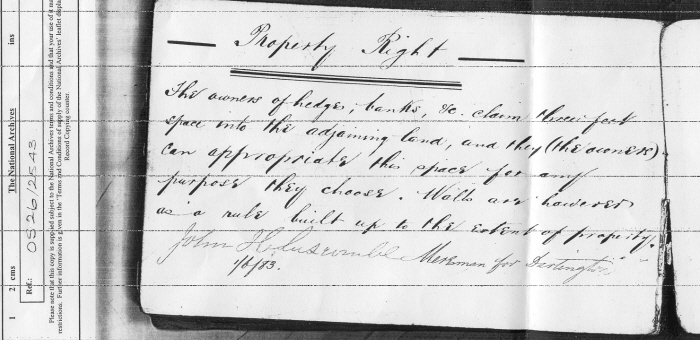 Property Right
The owners of hedges, banks, &c. claim three feet
space into the adjoining land, and they (the owners)
can appropriate this space for any
purpose they choose. Walls are however
as a rule built up to the extent of property.
John H Luscombe Meresman for Dartington
1/6/83.
ins
The National Archives
2 cms
1
Ref.: OS26/2543
Please note that this copy is supplied subject to the National Archives terms and conditions and that your use of it may
restrictions. Further information is given in the 'Terms and Conditions of supply of the National Archives' leaflet
Record Copying counter